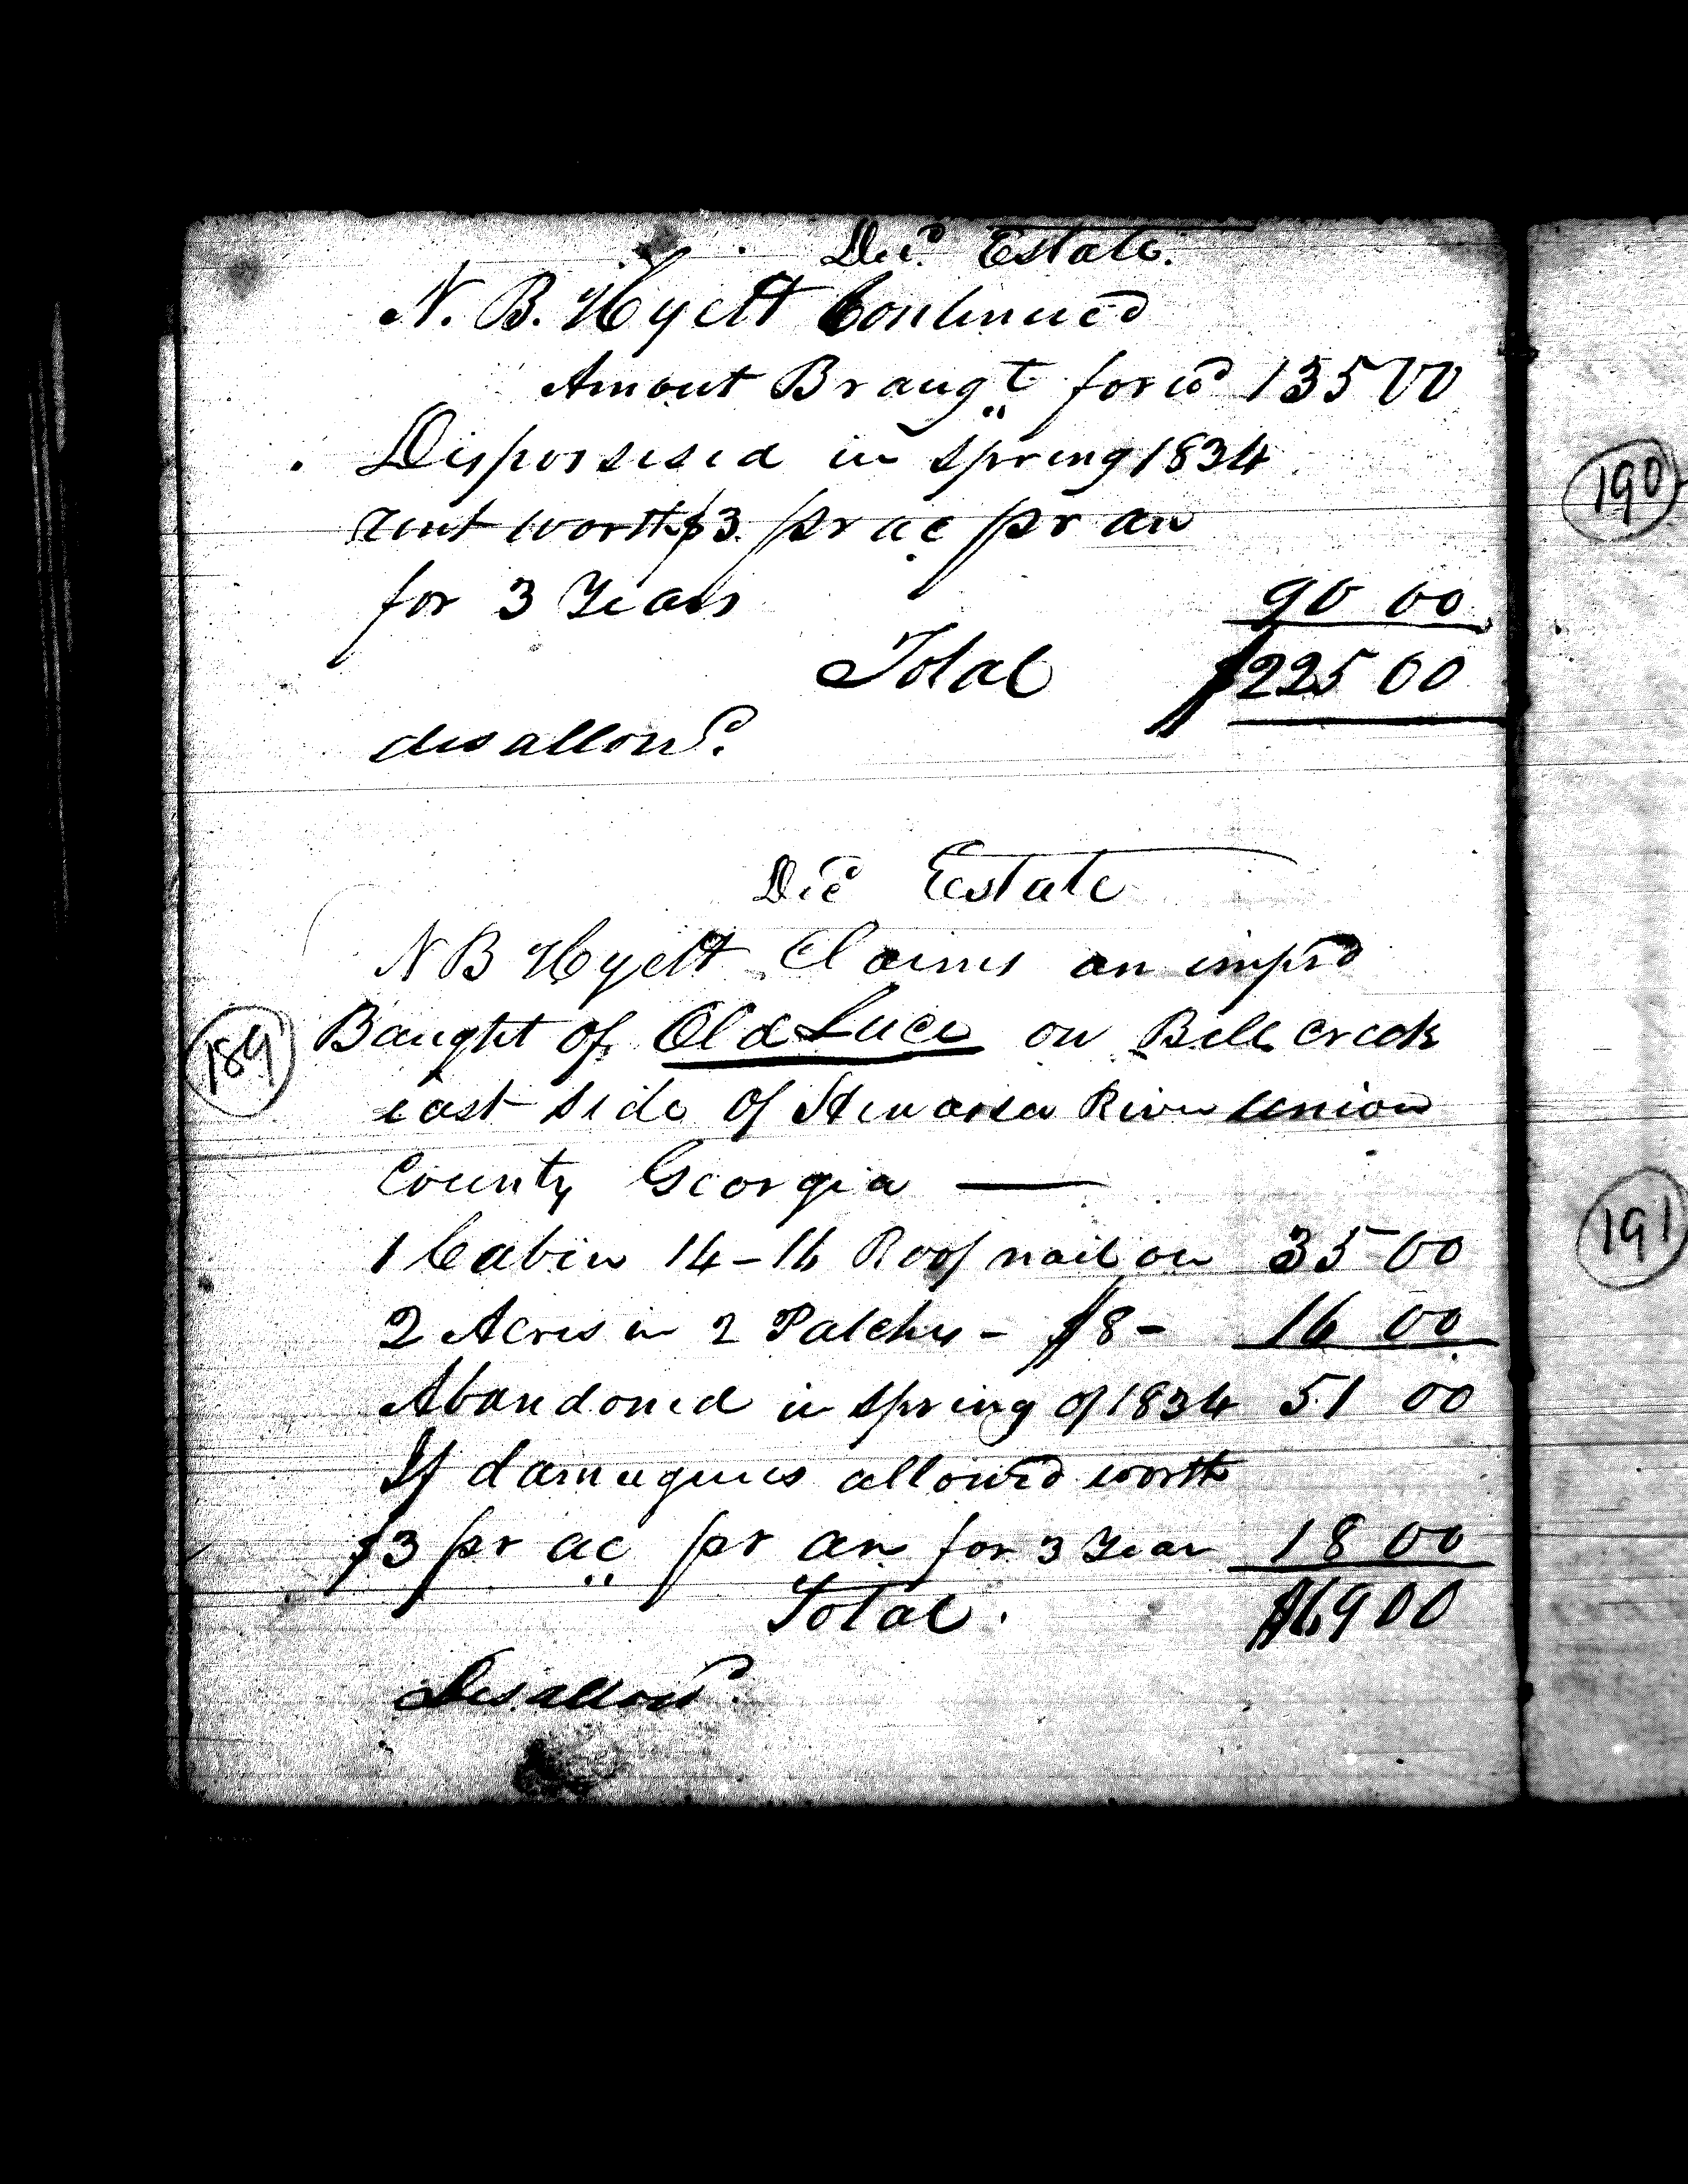 Decd. Estate.
N. B. Hyett Continued
Amout Braugt. ford 135 00
Dispossesed in Spring 1834
rent worth $3 pr ac pr an
for 3 Years 90 00
Total $225 00
disallowd.
Decd Estate
N B Hyett Claims an imprd
189 Baught of Old Luce on Bell creek
east side of Hewassa River Union
County Georgia —
1 Cabin 14-16 Roof nail on 35 00
2 Acres in 2 Patches - $8- 16 00
Abandoned in Spring of 1834 51 00
If damages allowed worth
$3 pr ac pr an for 3 Year 18 00
Total. $69 00
Disallowd.
190
191